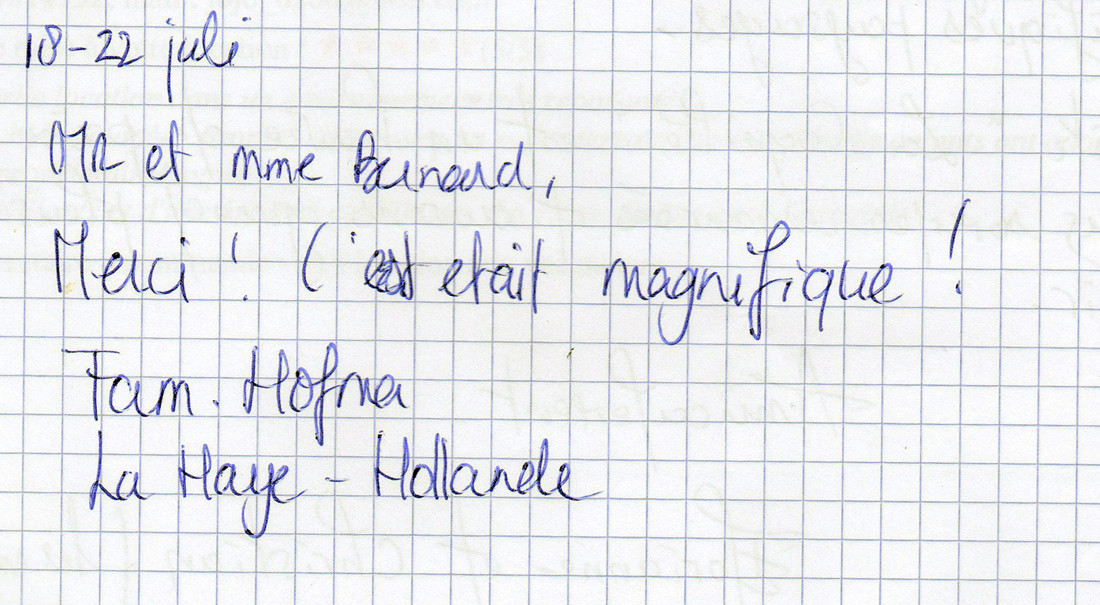 18-22 juli
MR et mme Bernard,
Merci ! C'etait magnifique !
Fam. Hofma
La Haye - Hollande